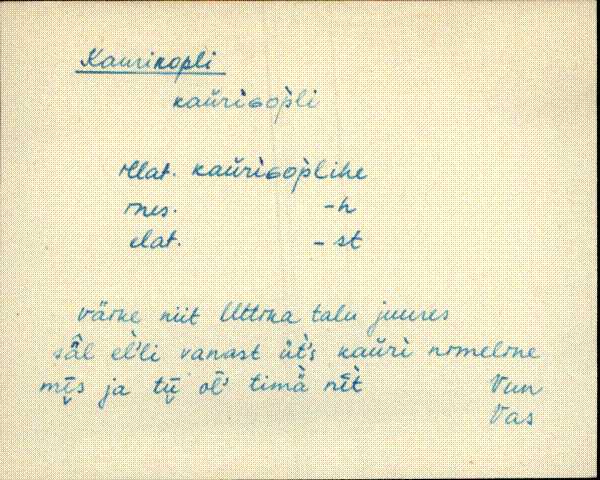 Kaurikopli
kaŭriɢop̀li
illat. kaŭriɢop̀lihe
ines. -h
elat. - st
väike niit Uttika talu juures
säl el̀'li vanast üt̀'s kaŭri nimeline
mīs ja tū ol̄'s timä nīt̀
Vun
Vas